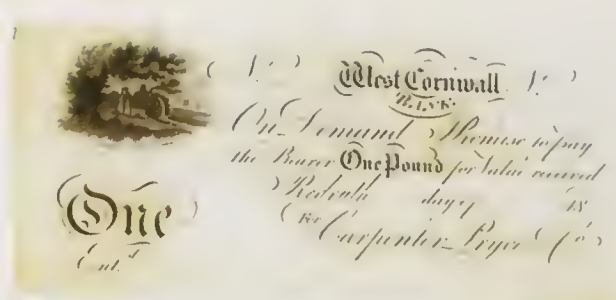 No. West Cornwall No.
BANK
On Demand I Promise to pay
the Bearer One Pound for Value received
Redruth day of 18
One
For
Carpenter Pryce & Co.
Ent.d